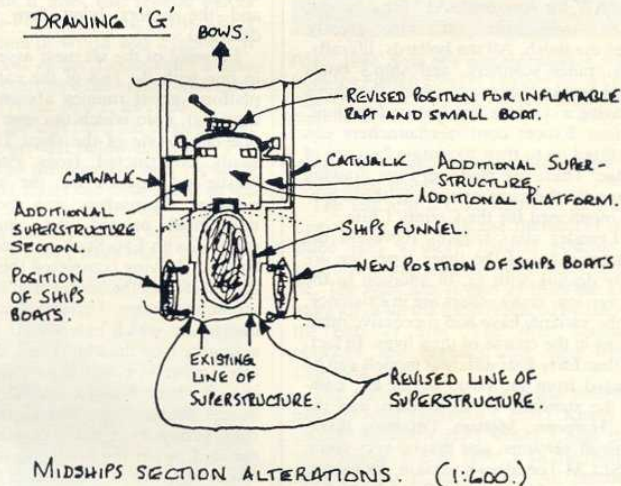 DRAWING 'G'
BOWS.
REVISED POSITION FOR INFLATABLE
RAFT AND SMALL BOAT.
CATWALK
CATWALK
ADDITIONAL SUPER-
STRUCTURE.
ADDITIONAL PLATFORM.
ADDITIONAL
SUPERSTRUCTURE
SECTION.
SHIPS FUNNEL.
POSITION
OF SHIPS
BOATS.
NEW POSITION OF SHIPS BOATS
EXISTING
LINE OF
SUPERSTRUCTURE.
REVISED LINE OF
SUPERSTRUCTURE.
MIDSHIPS SECTION ALTERATIONS. (1:600.)